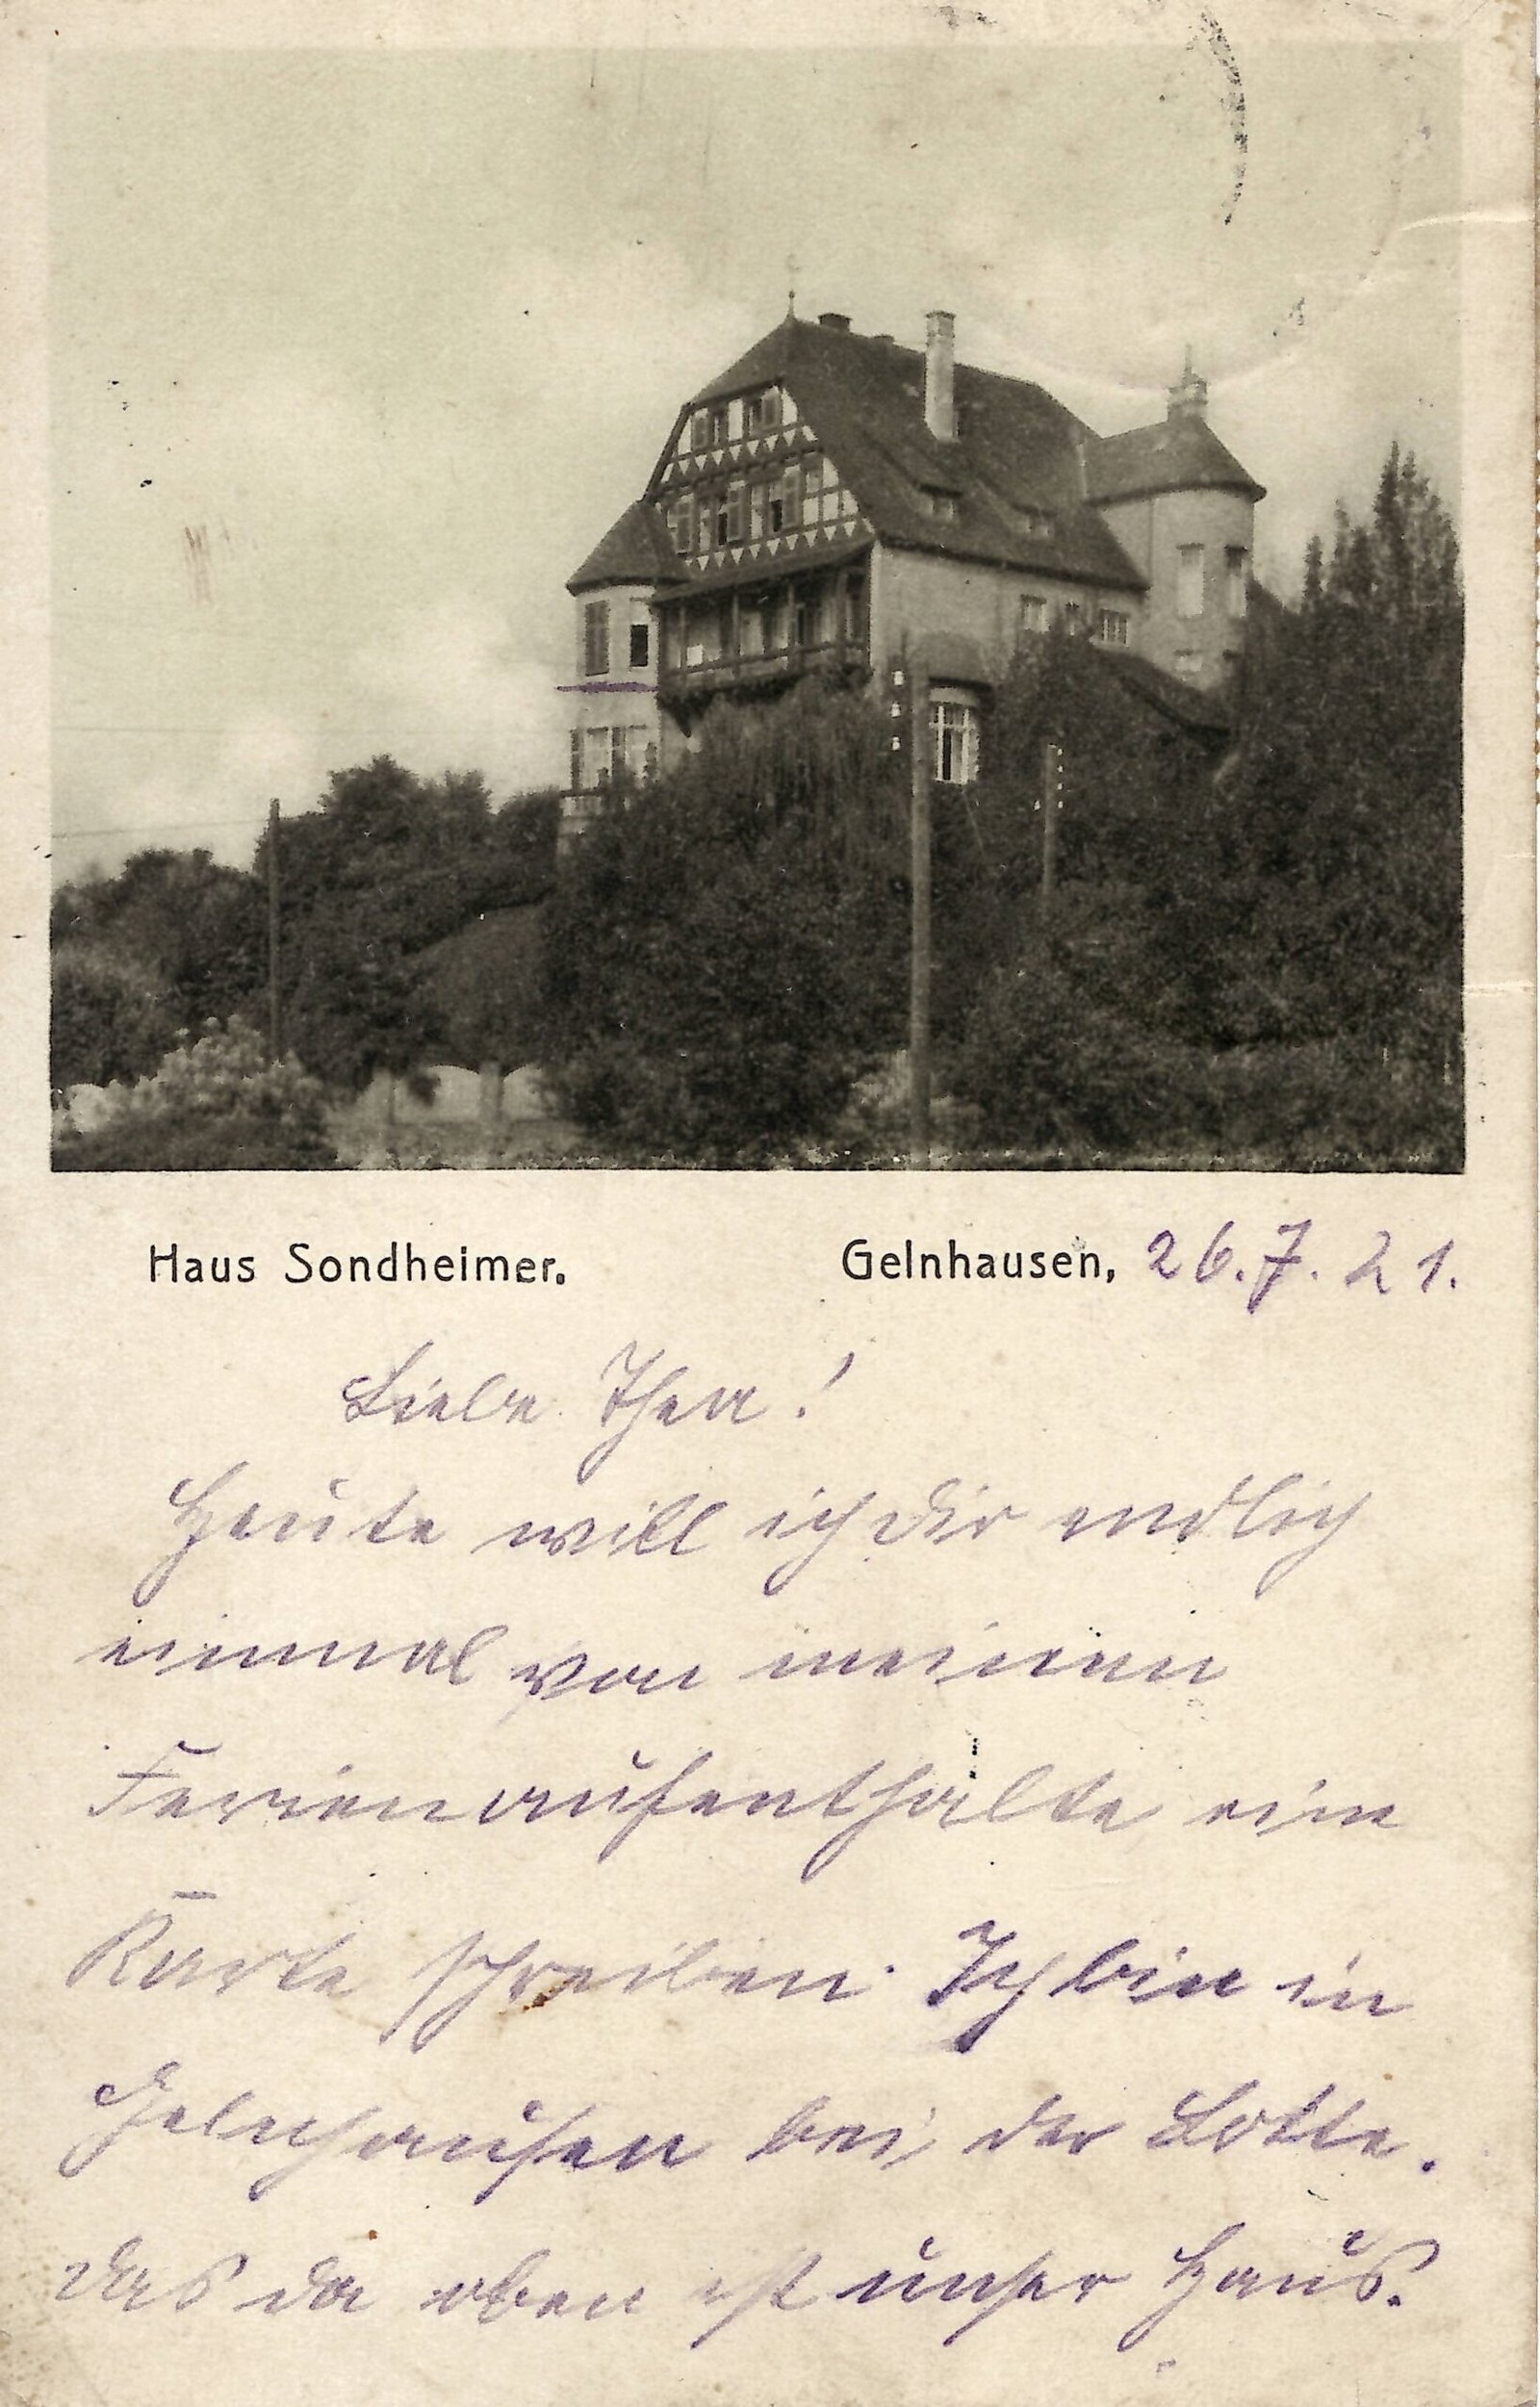 Haus Sondheimer. Gelnhausen, 26.7.21.
Liebe Thea!
Heute will ich dir endlich
einmal von meinem
Ferienaufenthalte eine
Karte schreiben. Ich bin in
Gelnhausen bei der Lotte.
Das da oben ist unser Haus.